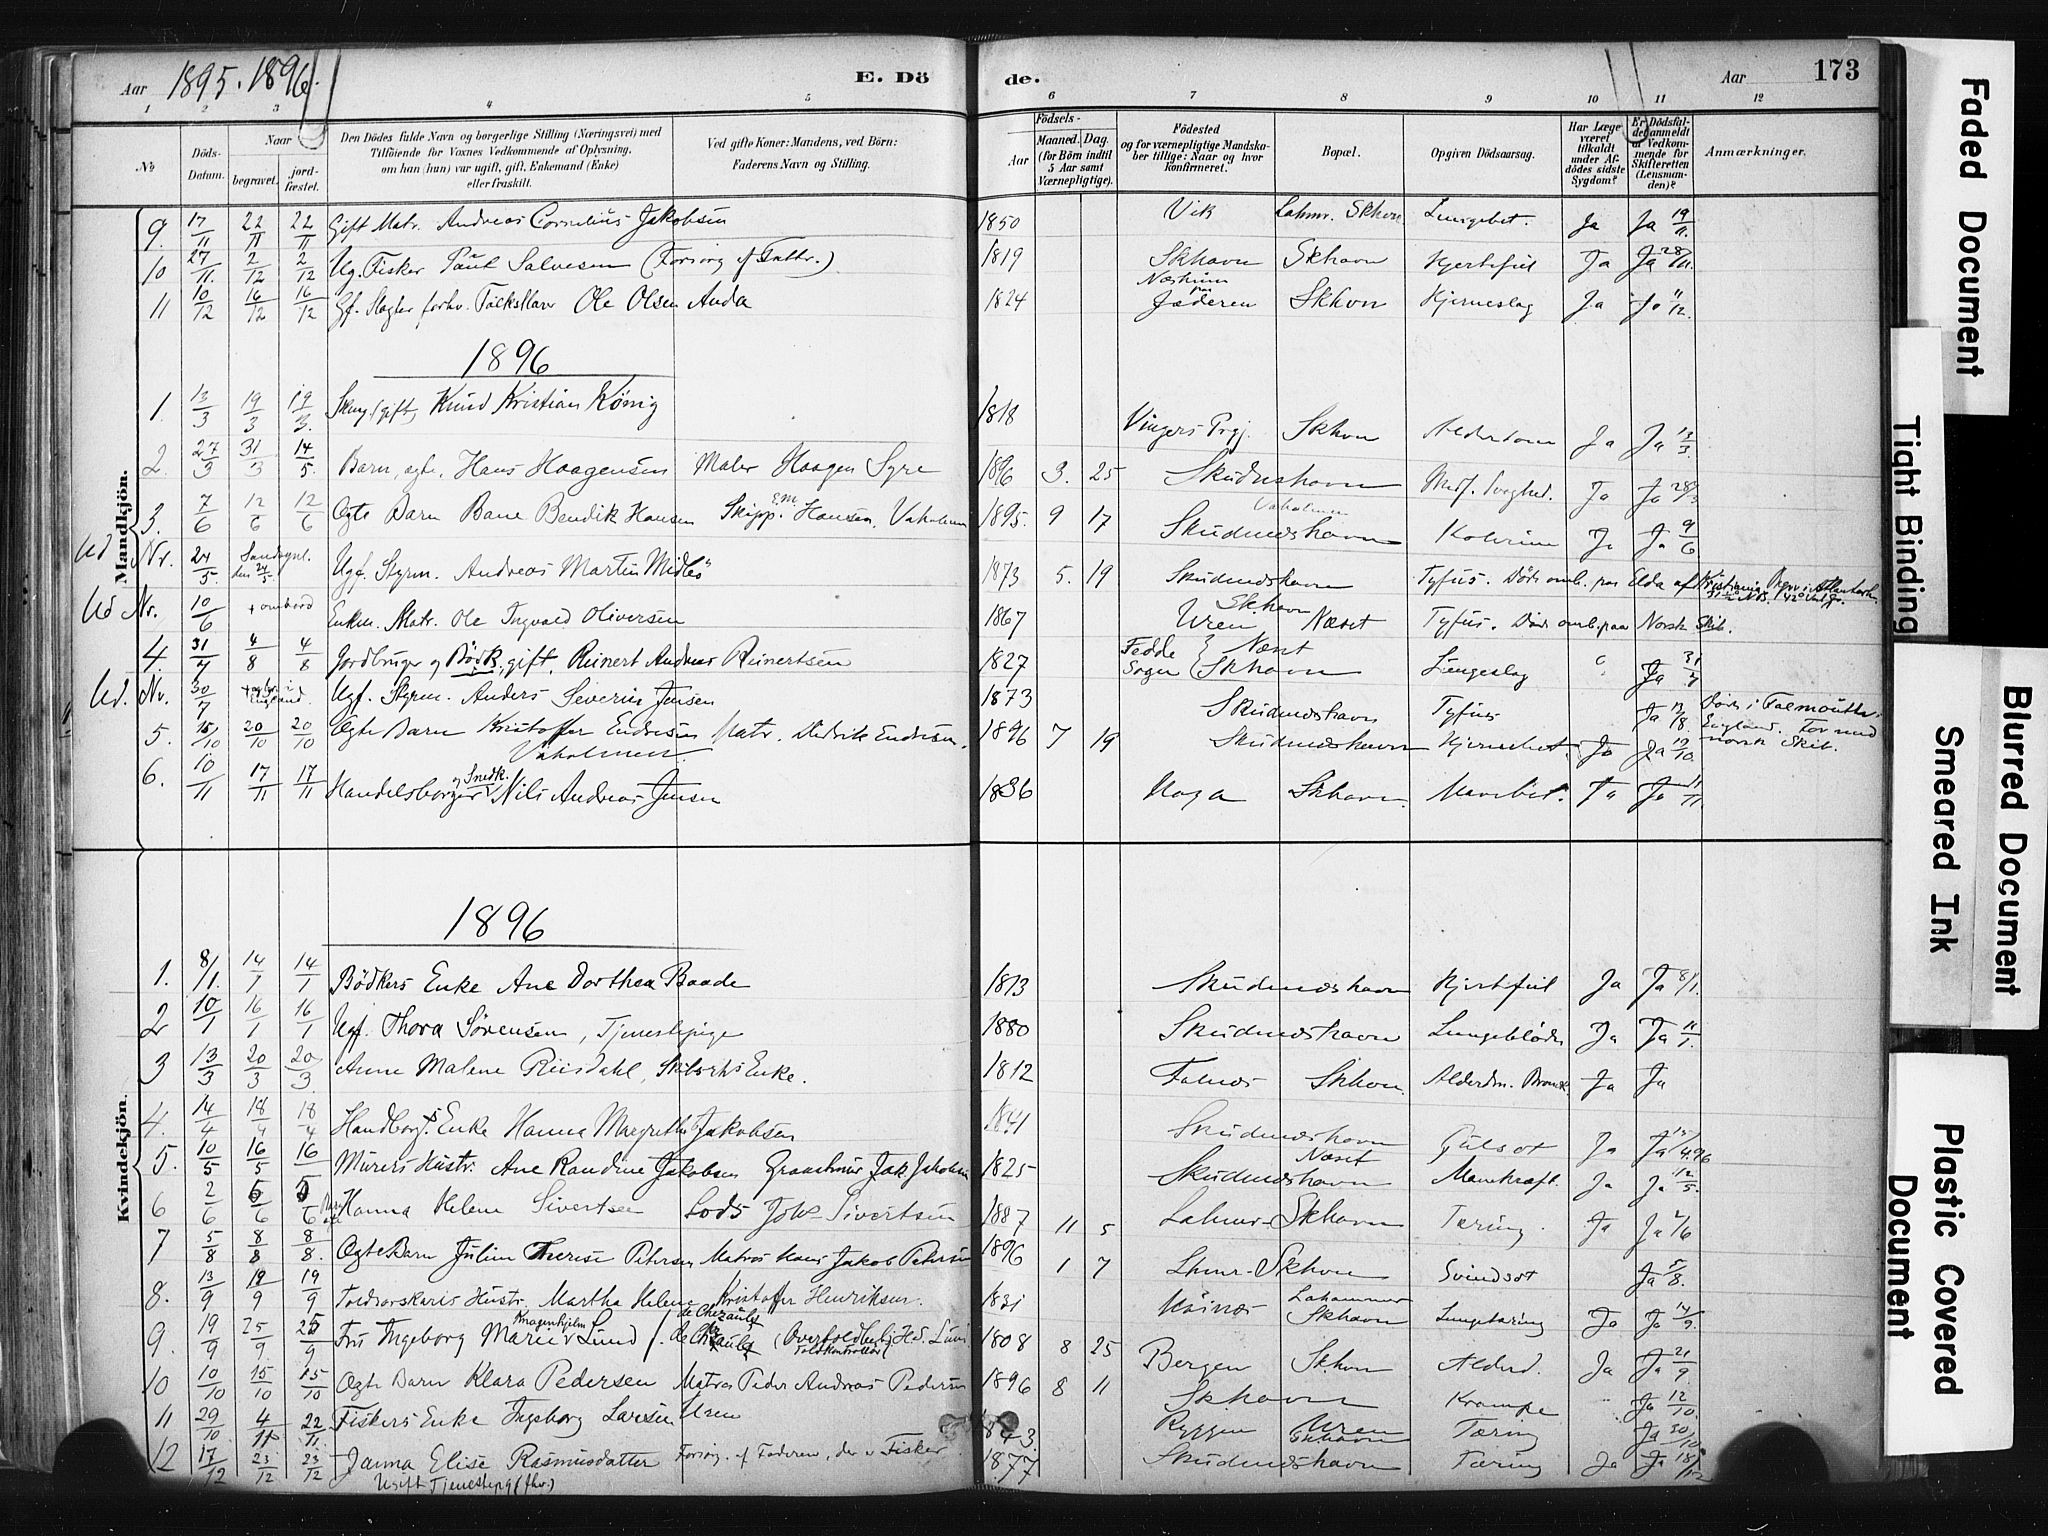 Aar 1895. 1896. E. Dö de. Aar 173
1 2 3 4 5 6 7 8 9 10 11 12
№
Döds-Datum.
Naar
begravet.
jord-fæstet.
Den Dödes fulde Navn og borgerlige Stilling (Næringsvei) med
Tilföiende for Voxnes Vedkommende af Oplysning,
om han (hun) var ugift, gift, Enkemand (Enke)
eller fraskilt.
Ved gifte Koner: Mandens, ved Börn:
Faderens Navn og Stilling.
Födsels-
Aar
Maaned. Dag.
(for Börn indtil
5 Aar samt
Værnepligtige).
Födested
og for værnepligtige Mandska-
ber tillige: Naar og hvor
konfirmeret.
Bopæl.
Opgiven Dödsaarsag.
Har Læge
været
tilkaldt
under Af-
dödes sidste
Sygdom?
Er Dödsfal-
det anmeldt
af Vedkom-
mende for
Skifteretten
(Lensman-
den)?
Anmærkninger.
Mandkjön.
9. 17/11 22/11 22/11 Gift Matr. Andreas Cornelius Jakobsen 1850 Vik Lahmr. Skhavn. Lungebet. Ja Ja 19/11.
10 27/11. 2/12 2/12 Ug. Fisker Paul Salvesen (Forsörg. af Fattv.) 1819 Skhavn Skhavn Hjertefeil Ja Ja 28/11.
11 10/12 16/12 16/12 Gf. Slagter forhv. Ole Olsen Anda 1824 Jæderen Skhvn Hjerneslag Ja Ja 11/12.
1896
1. 13/3 19/3 19/3. gift, Knud Kristian König 1818 Vingers Prgj. Skhvn Alderdom Ja Ja 13/3.
2. 27/3 31/3 14/5 Barn, ægte, Hans Haagensen Maler Haagen Syre 1896 3. 25 Skudneshavn Medf. Svaghed. Ja Ja 28/3
3. 7/6 12/6 12/6 Ægte Barn Bendik Hansen Skipp. Hansen, Vaholmen 1895. 9 17 Vaholmen Skudneshavn Kolerine Ja Ja 9/6
Ud Nr. 24/5. den 24/5. Ugf. Styrm. Andreas Martin Midbö 1873 5. 19 Skudneshavn Tyfus. Döde omb. paa Elda af Kristiania
Ud Nr. 10/6 ombord Enkm. Matr. Ole Ingvald Oliversen 1867 Skhavn Uren Næset Tyfus. Döde omb. paa Norsk Skib.
4. 31/7 4/8 4/8 Jordbruger og Bödk. gift, Reinert Andreas Reinertsen 1827 Fedde Sogn Næset Skhavn Lungeslag Ja 31/7
Ud. Nr. 30/7 i England. Ugf. Styrm. Anders Severin Jensen 1873 Skudneshavn Tyfus Ja /8. Döde i Falmouth i England. For med norsk Skib.
5. 15/10 20/10 20/10 Ægte Barn Kristoffer Endresen Matr. Didrik Endresen. Vaholmen 1896 7 19 Skudneshavn Hjernebet. Ja Ja /10.
6. 10/11 17/11 17/11 Handelsborger og Snedk. Nils Andreas Jensen 1836 Haga Skhavn. Mavebet. Ja Ja 11/11
Kvindekjön.
1896
1. 8/1. 14/1 14/1 Bödkers Enke Ane Dorthea Baade 1813 Skudneshavn Hjertfeil Ja Ja 8/1.
2 10/1 16/1 16/1 Ugf. Thora Sörensen, Tjenestepige 1880 Skudneshavn Lungeblödn. Ja Ja 11/1.
3 13/3 20/3 20/3. Anne Malene Riisdahl, Enke. 1812 Falnes Skhvn. Alderdm. Ja Ja
4. 14/4 18/4 18/4 Handborgs. Enke Hanna Margrethe Jakobsen 1841 Skudneshavn Gulsot Ja Ja 15/4 96
5. 10/5 16/5 16 Murers Hustr. Ane Randine Jakobsen Graastmur Jak Jakobsen 1825 Næset Skudneshavn Mavekræft. Ja Ja 12/5.
6 2/6 6/6 5/6 Hanna Helene Sivertsen Lods Sivertsen 1887 11 5 Lahmr- Skhavn Tæring. Ja Ja /6
7 5/8 8/8 8/8. Ægte Barn Juline Therese Petersen Matros Hans Jakob Petersen 1896 1 7 Lhmr- Skhvn Svindsot Ja 5/8.
8. 13/9 18/9 19/9 Hustr. Martha Helene Kristoffer Henriksen. 1831 Lahammer Skhavn Lungetæring Ja Ja 14/9.
9. 19/9. 25/9. 25/9 Fru Ingeborg Marie Lund f. de Chezaulx (Overtoldbetj. Toldkontrollör) 1808 8 25 Bergen Skhvn Alderd. Ja Ja 21/9
10 10/10 15/10 15/10 Ægte Barn Klara Pedersen Matros Peder Andreas Pedersen 1896 8 11 Skhavn Krampe Ja 12/10.
11 29/10. 4/11 22/11. Fiskers Enke Ingeborg Larsen Uren 1843. Ryggen Uren Skhavn Tæring Ja 30/10
12 17/12 23/12 23/12 Janna Elise Rasmusdatter Forsörg. af Faderen, der er Fisker 1877. Skudneshavn Tæring Ja Ja 18/12
Ugift Tjenestepg (fhv.)
Faded Document
Tight Binding
Blurred Document
Smeared Ink
Plastic Covered
Document